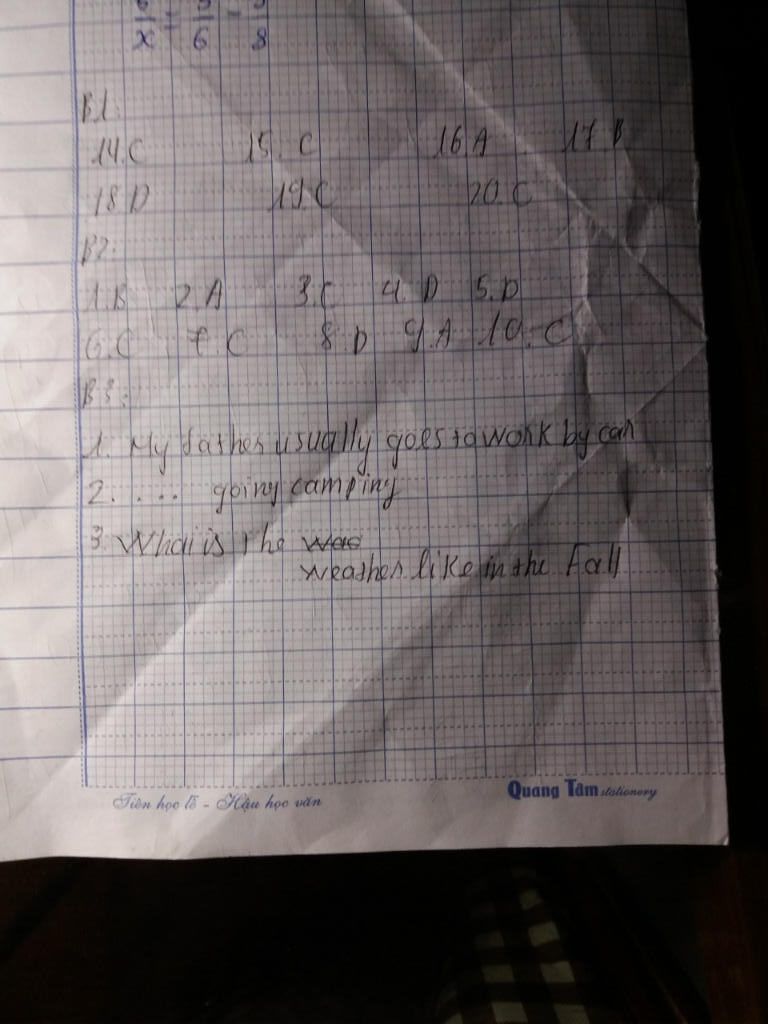 x = 6 - 8
B1:
14.C 15. C 16.A 17.B
18.D 19.C 20.C
B2:
1.B 2.A 3.C 4.D 5.D
6.C 7.C 8.D 9.A 10.C
B3:
1. My father usually goes to work by car
2. .... going camping
3. What is the wae
weather like in the Fall
Tiên học lễ - Hậu học văn
Quang Tâm stationery